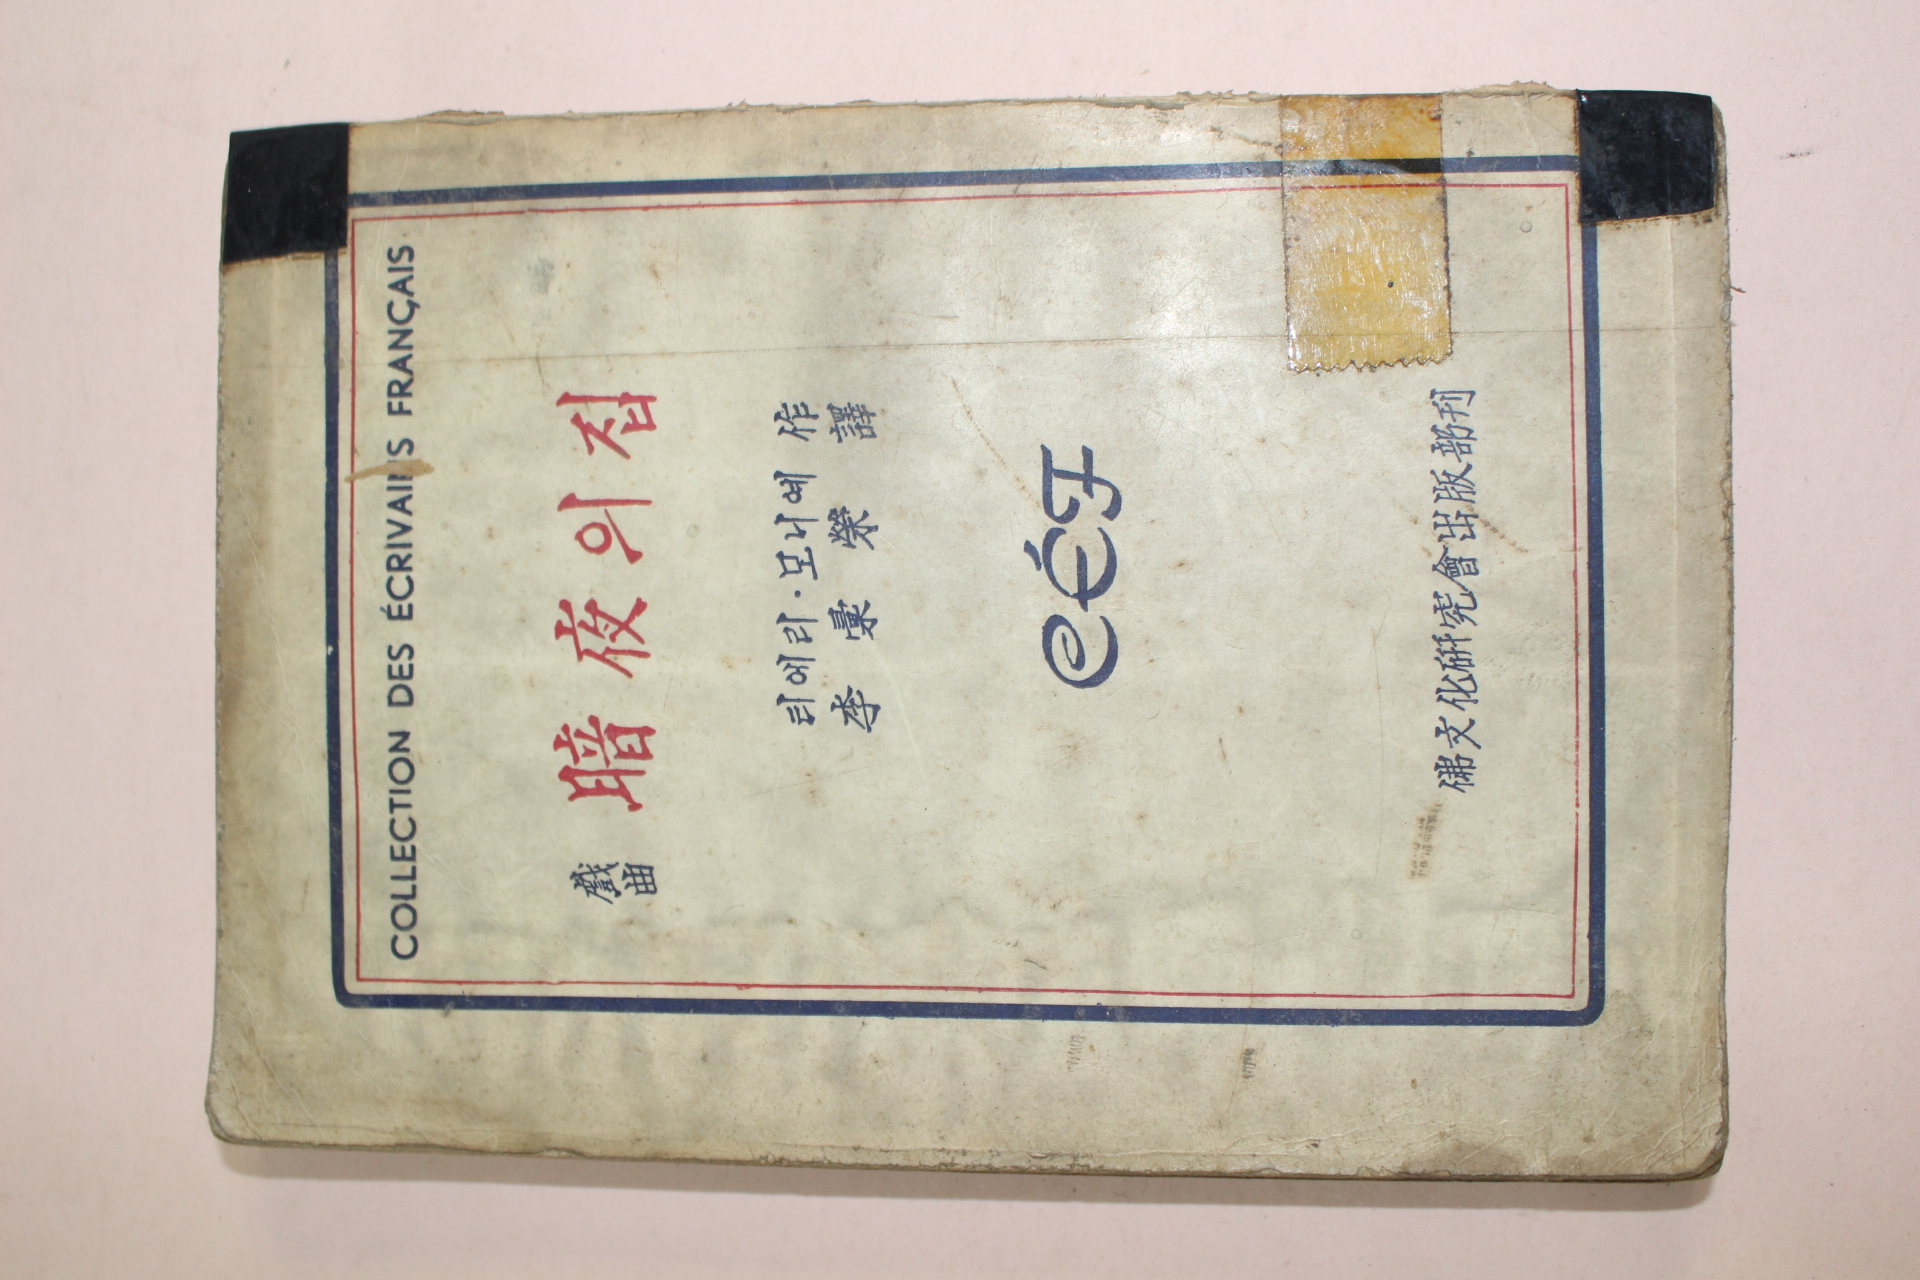 COLLECTION DES ÉCRIVAINS FRANÇAIS
戲曲 暗夜의집
티에리·모니에 作
李彙榮 譯
CÉF
佛文化硏究會出版部刊